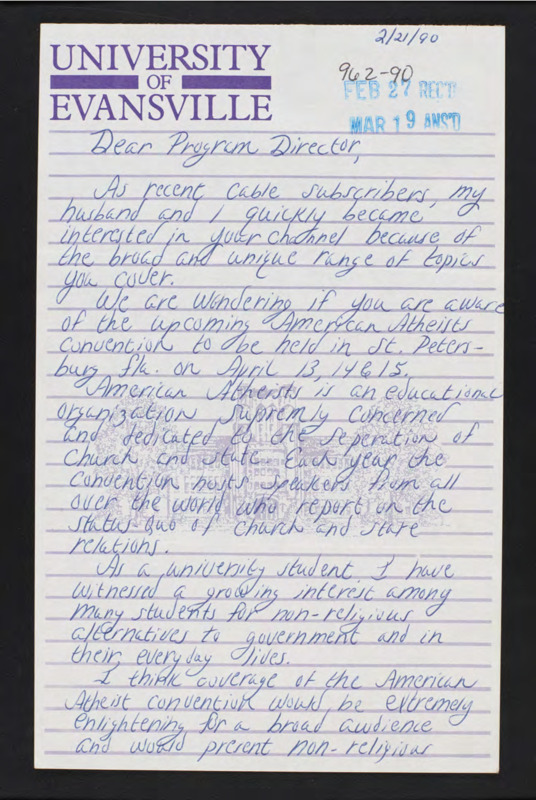 2/21/90
UNIVERSITY
OF
EVANSVILLE
962-90
FEB 27 REC'D
MAR 19 ANS'D
Dear Program Director,
As recent cable subscribers, my
husband and I quickly became
interested in your channel because of
the broad and unique range of topics
you cover.
We are wondering if you are aware
of the upcoming American Atheists
convention to be held in St. Peters-
burg Fla. on April 13, 14 & 15.
American Atheists is an educational
organization supremly concerned
and dedicated to the seperation of
church and state. Each year the
convention hosts speakers from all
over the world who report on the
status quo of church and state
relations.
As a university student I have
witnessed a growing interest among
many students for non-religious
alternatives to government and in
their everyday lives.
I think coverage of the American
Atheist convention would be extremely
enlightening for a broad audience
and would present non-religious